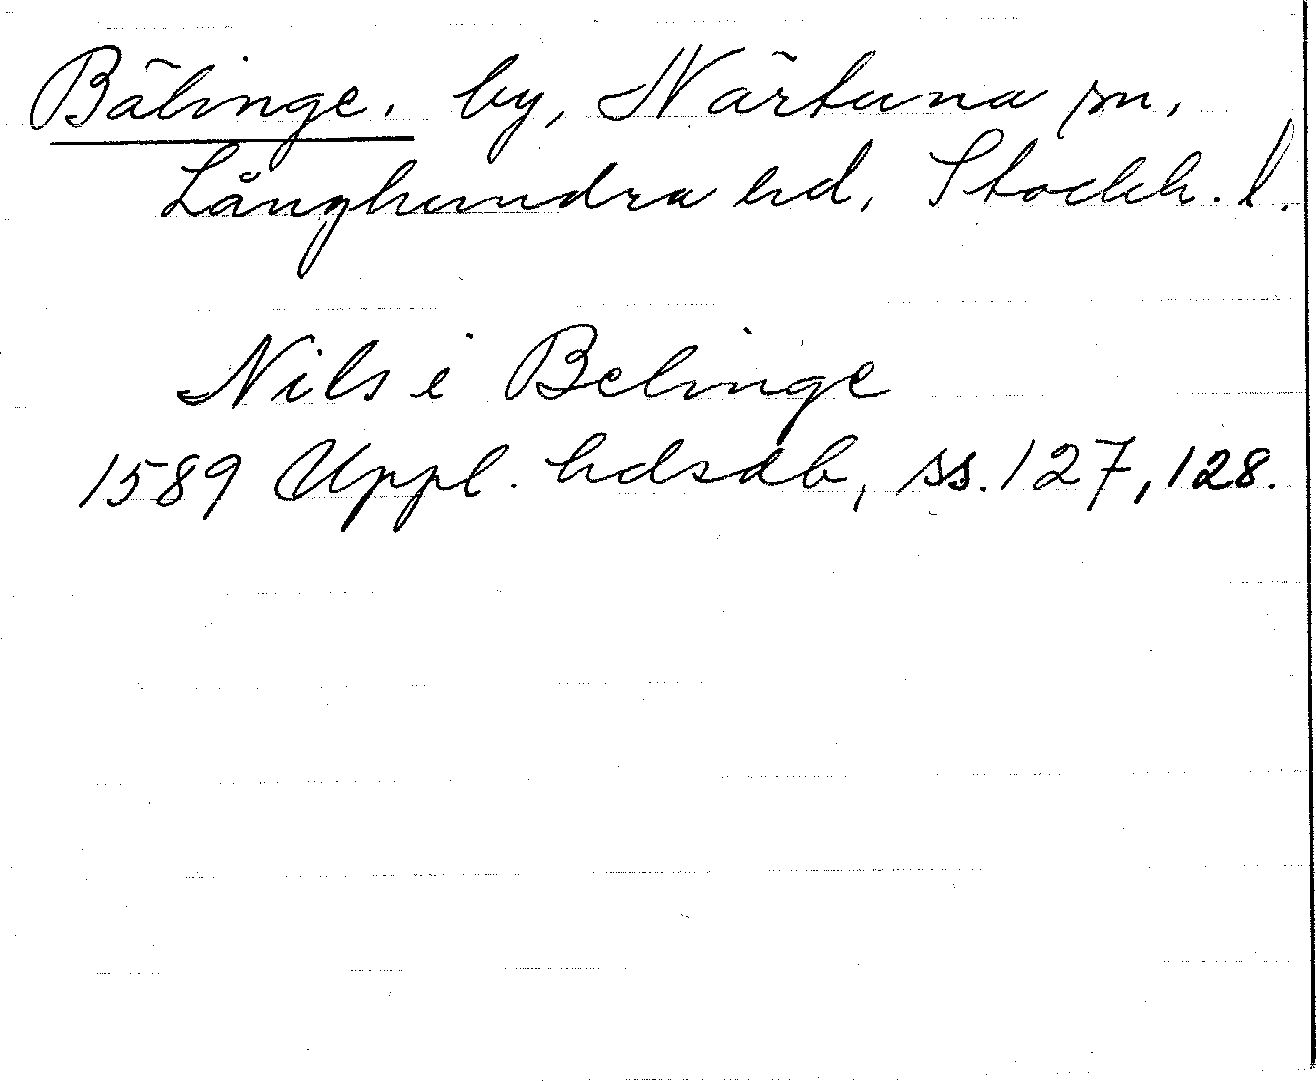 Bälinge, by, Närtuna sn,
Långhundra hd, Stockh. l.
Nils i Belinge
1589 Uppl. hdsdb, ss. 127, 128.